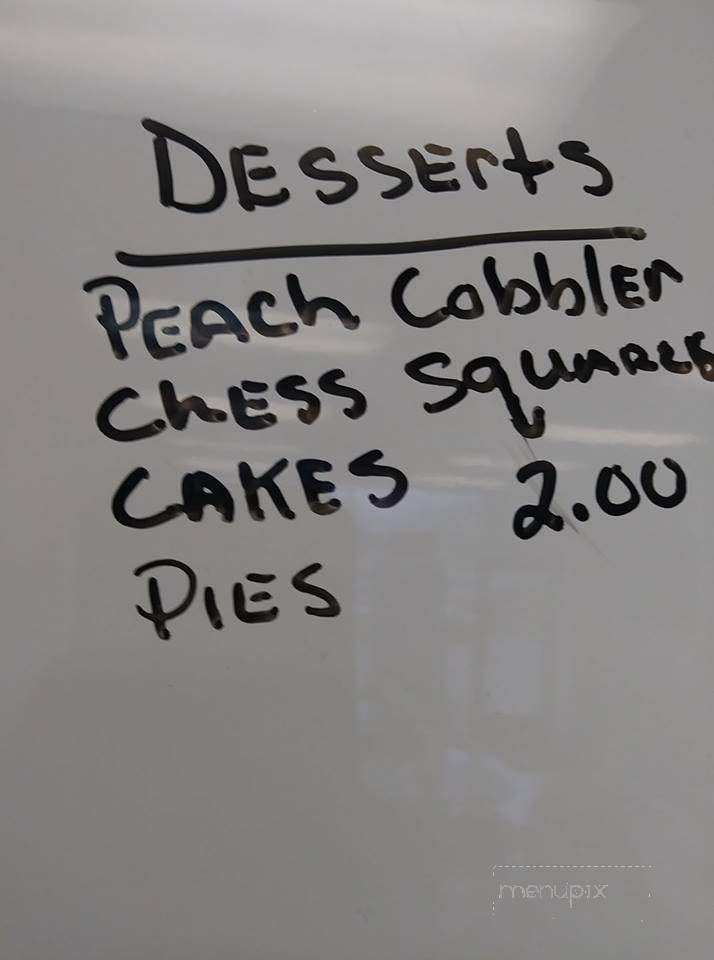 DESSERtS
PEACh CobblER
ChESS SquARES
CAKES 2.00
PIES
menupix